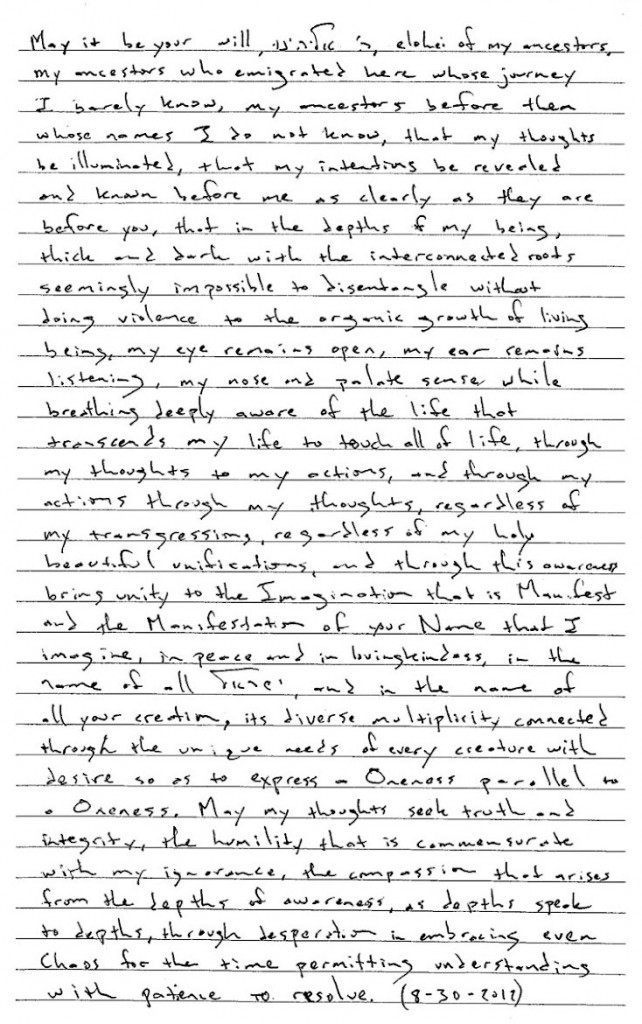 May it be your will, ה׳ אלהינו, elohei of my ancestors,
my ancestors who emigrated here whose journey
I barely know, my ancestors before them
whose names I do not know, that my thoughts
be illuminated, that my intentions be revealed
and known before me as clearly as they are
before you, that in the depths of my being,
thick and dark with the interconnected roots
seemingly impossible to disentangle without
doing violence to the organic growth of living
being, my eye remains open, my ear remains
listening, my nose and palate sense while
breathing deeply aware of the life that
transcends my life to touch all of life, through
my thoughts to my actions, and through my
actions through my thoughts, regardless of
my transgressions, regardless of my holy
beautiful unifications, and through this awareness
bring unity to the Imagination that is Manifest
and the Manifestation of your Name that I
imagine, in peace and in lovingkindness, in the
name of all ישראל, and in the name of
all your creation, its diverse multiplicity connected
through the unique needs of every creature with
desire so as to express a Oneness parallel to
a Oneness. May my thoughts seek truth and
integrity, the humility that is commensurate
with my ignorance, the compassion that arises
from the depths of awareness, as depths speak
to depths, through desperation in embracing even
Chaos for the time permitting understanding
with patience to resolve. (8-30-2012)